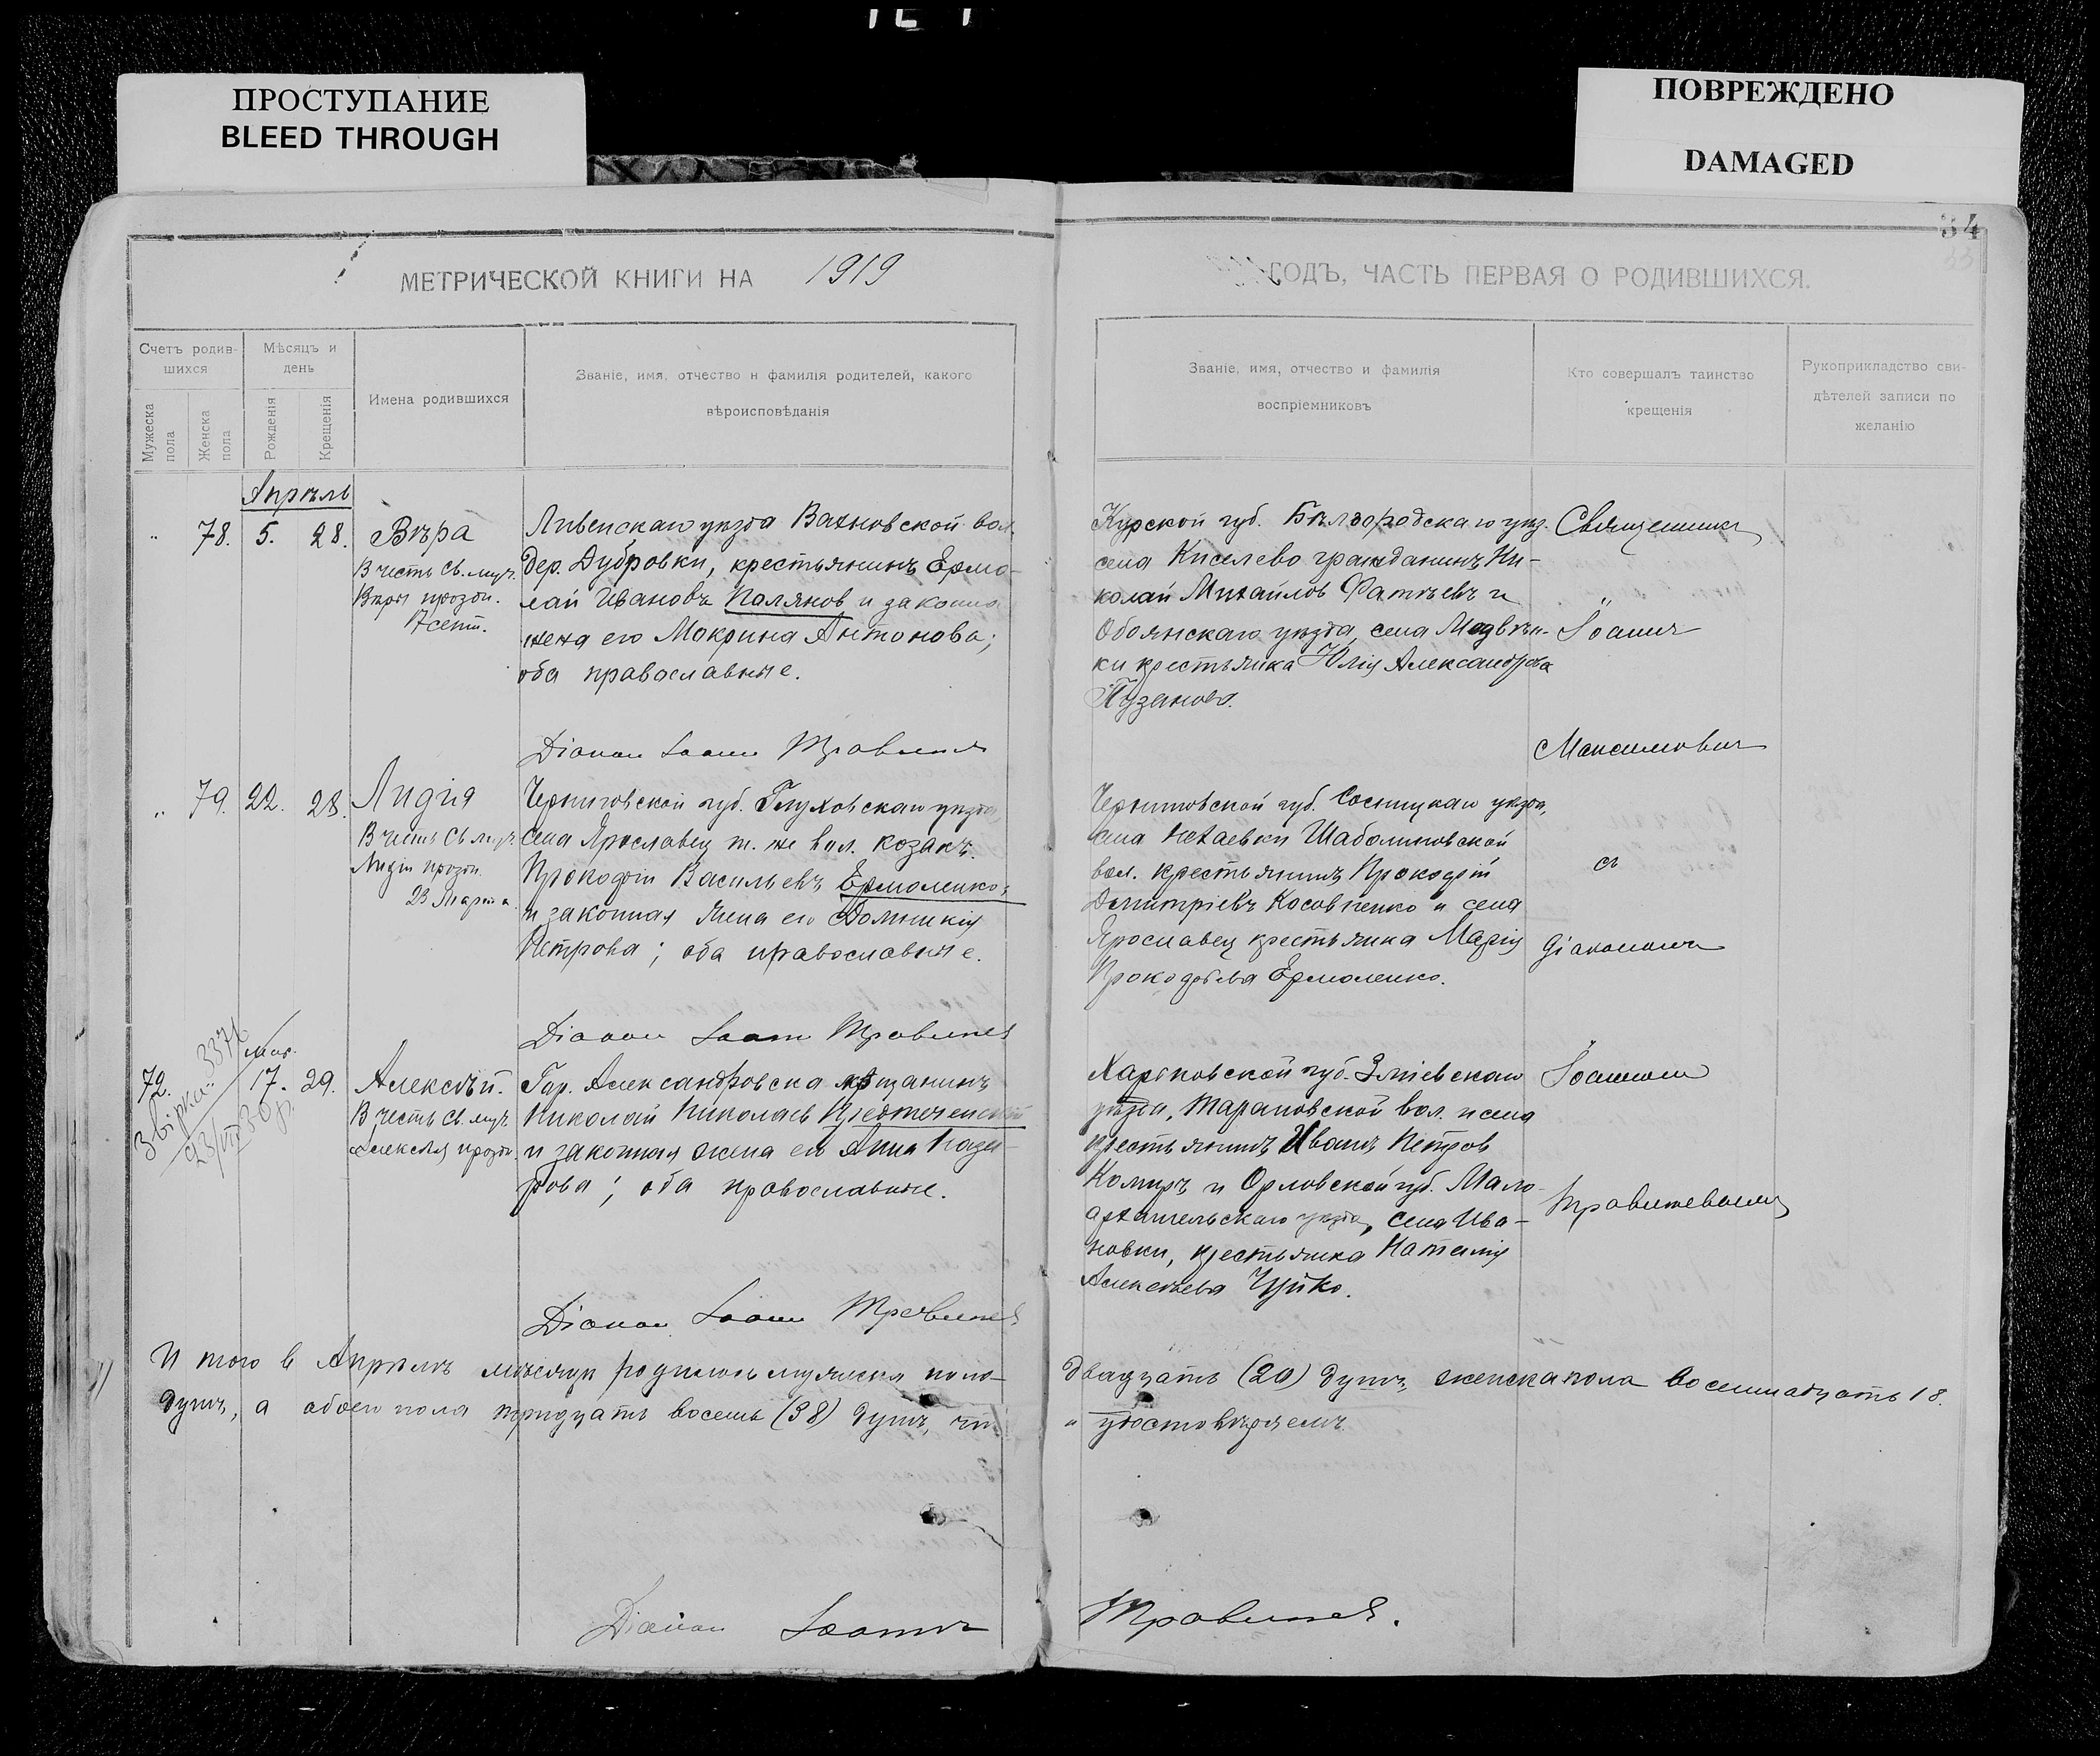 ПРОСТУПАНИЕ
BLEED THROUGH
ПОВРЕЖДЕНО
DAMAGED
34
МЕТРИЧЕСКОЙ КНИГИ НА 1919
ГОДЪ, ЧАСТЬ ПЕРВАЯ О РОДИВШИХСЯ.
Счетъ родив-
шихся
Мужеска
пола
Женска
пола
Мѣсяцъ и
день
Рожденія
Крещенія
Имена родившихся
Званіе, имя, отчество и фамилія родителей, какого
вѣроисповѣданія
Званіе, имя, отчество и фамилія
воспріемниковъ
Кто совершалъ таинство
крещенія
Рукоприкладство сви-
дѣтелей записи по
желанію
Апрѣль
78. 5. 28.
Вѣра
В честь Св. муч.
Вѣры праздн.
17 сент.
Ливенскаго уѣзда Вахновской вол.
дер. Дубровки, крестьянинъ Ермо-
лай Ивановъ Поляков и законная
жена его Мокрина Антонова;
оба православные.
Діакон Іоанн Травинев
Курской губ. Бѣлгородскаго уѣз.
села Киселево гражданинъ Ни-
колай Михайлов Фатѣевъ и
Обоянскаго уѣзда, села Медвѣн-
ки крестьянка Юлія Александрова
Пузанова.
Священникъ
Іоаннъ
Максимович
79. 22. 28.
Лидія
В честь Св. муч.
Лидіи праздн.
23 Марта
Черниговской губ. Глуховскаго уѣзда,
села Ярославец т. же вол. козакъ
Прокофій Васильевъ Ермоленко
и законная жена его Домникія
Петрова; оба православные.
Діакон Іоанн Травинев
Черниговской губ. Сосницкаго уѣзда,
села Нехаевки Шабалиновской
вол. крестьянинъ Прокофій
Димитріевъ Косовпенко и села
Ярославец крестьянка Марія
Прокофьева Ермоленко.
съ
діакономъ
Звірка 3376
23/VII 30 р.
72. 17. 29.
Алексѣй.
В честь Св. муч.
Алексѣя праздн.
Гор. Александровска мѣщанинъ
Николай Николаев Предтеченский
и законная жена его Анна Наза-
рова; оба православные.
Діакон Іоанн Травинев
Харьковской губ. Зміевскаго
уѣзда, Тарановской вол. и села
крестьянинъ Иванъ Петров
и Орловской губ. Мало-
архангельскаго уѣзда, села Ива-
новки, крестьянка Наталія
Алексѣева
Іоанномъ
Травиневымъ
И того в Апрѣлѣ мѣсяцѣ родилось мужска пола
двадцать (20) душъ, женска пола восемнадцать 18.
душъ, а обоего пола тридцать восемь (38) душъ, что
и удостовѣряемъ
Діакон Іоаннъ Травинев.